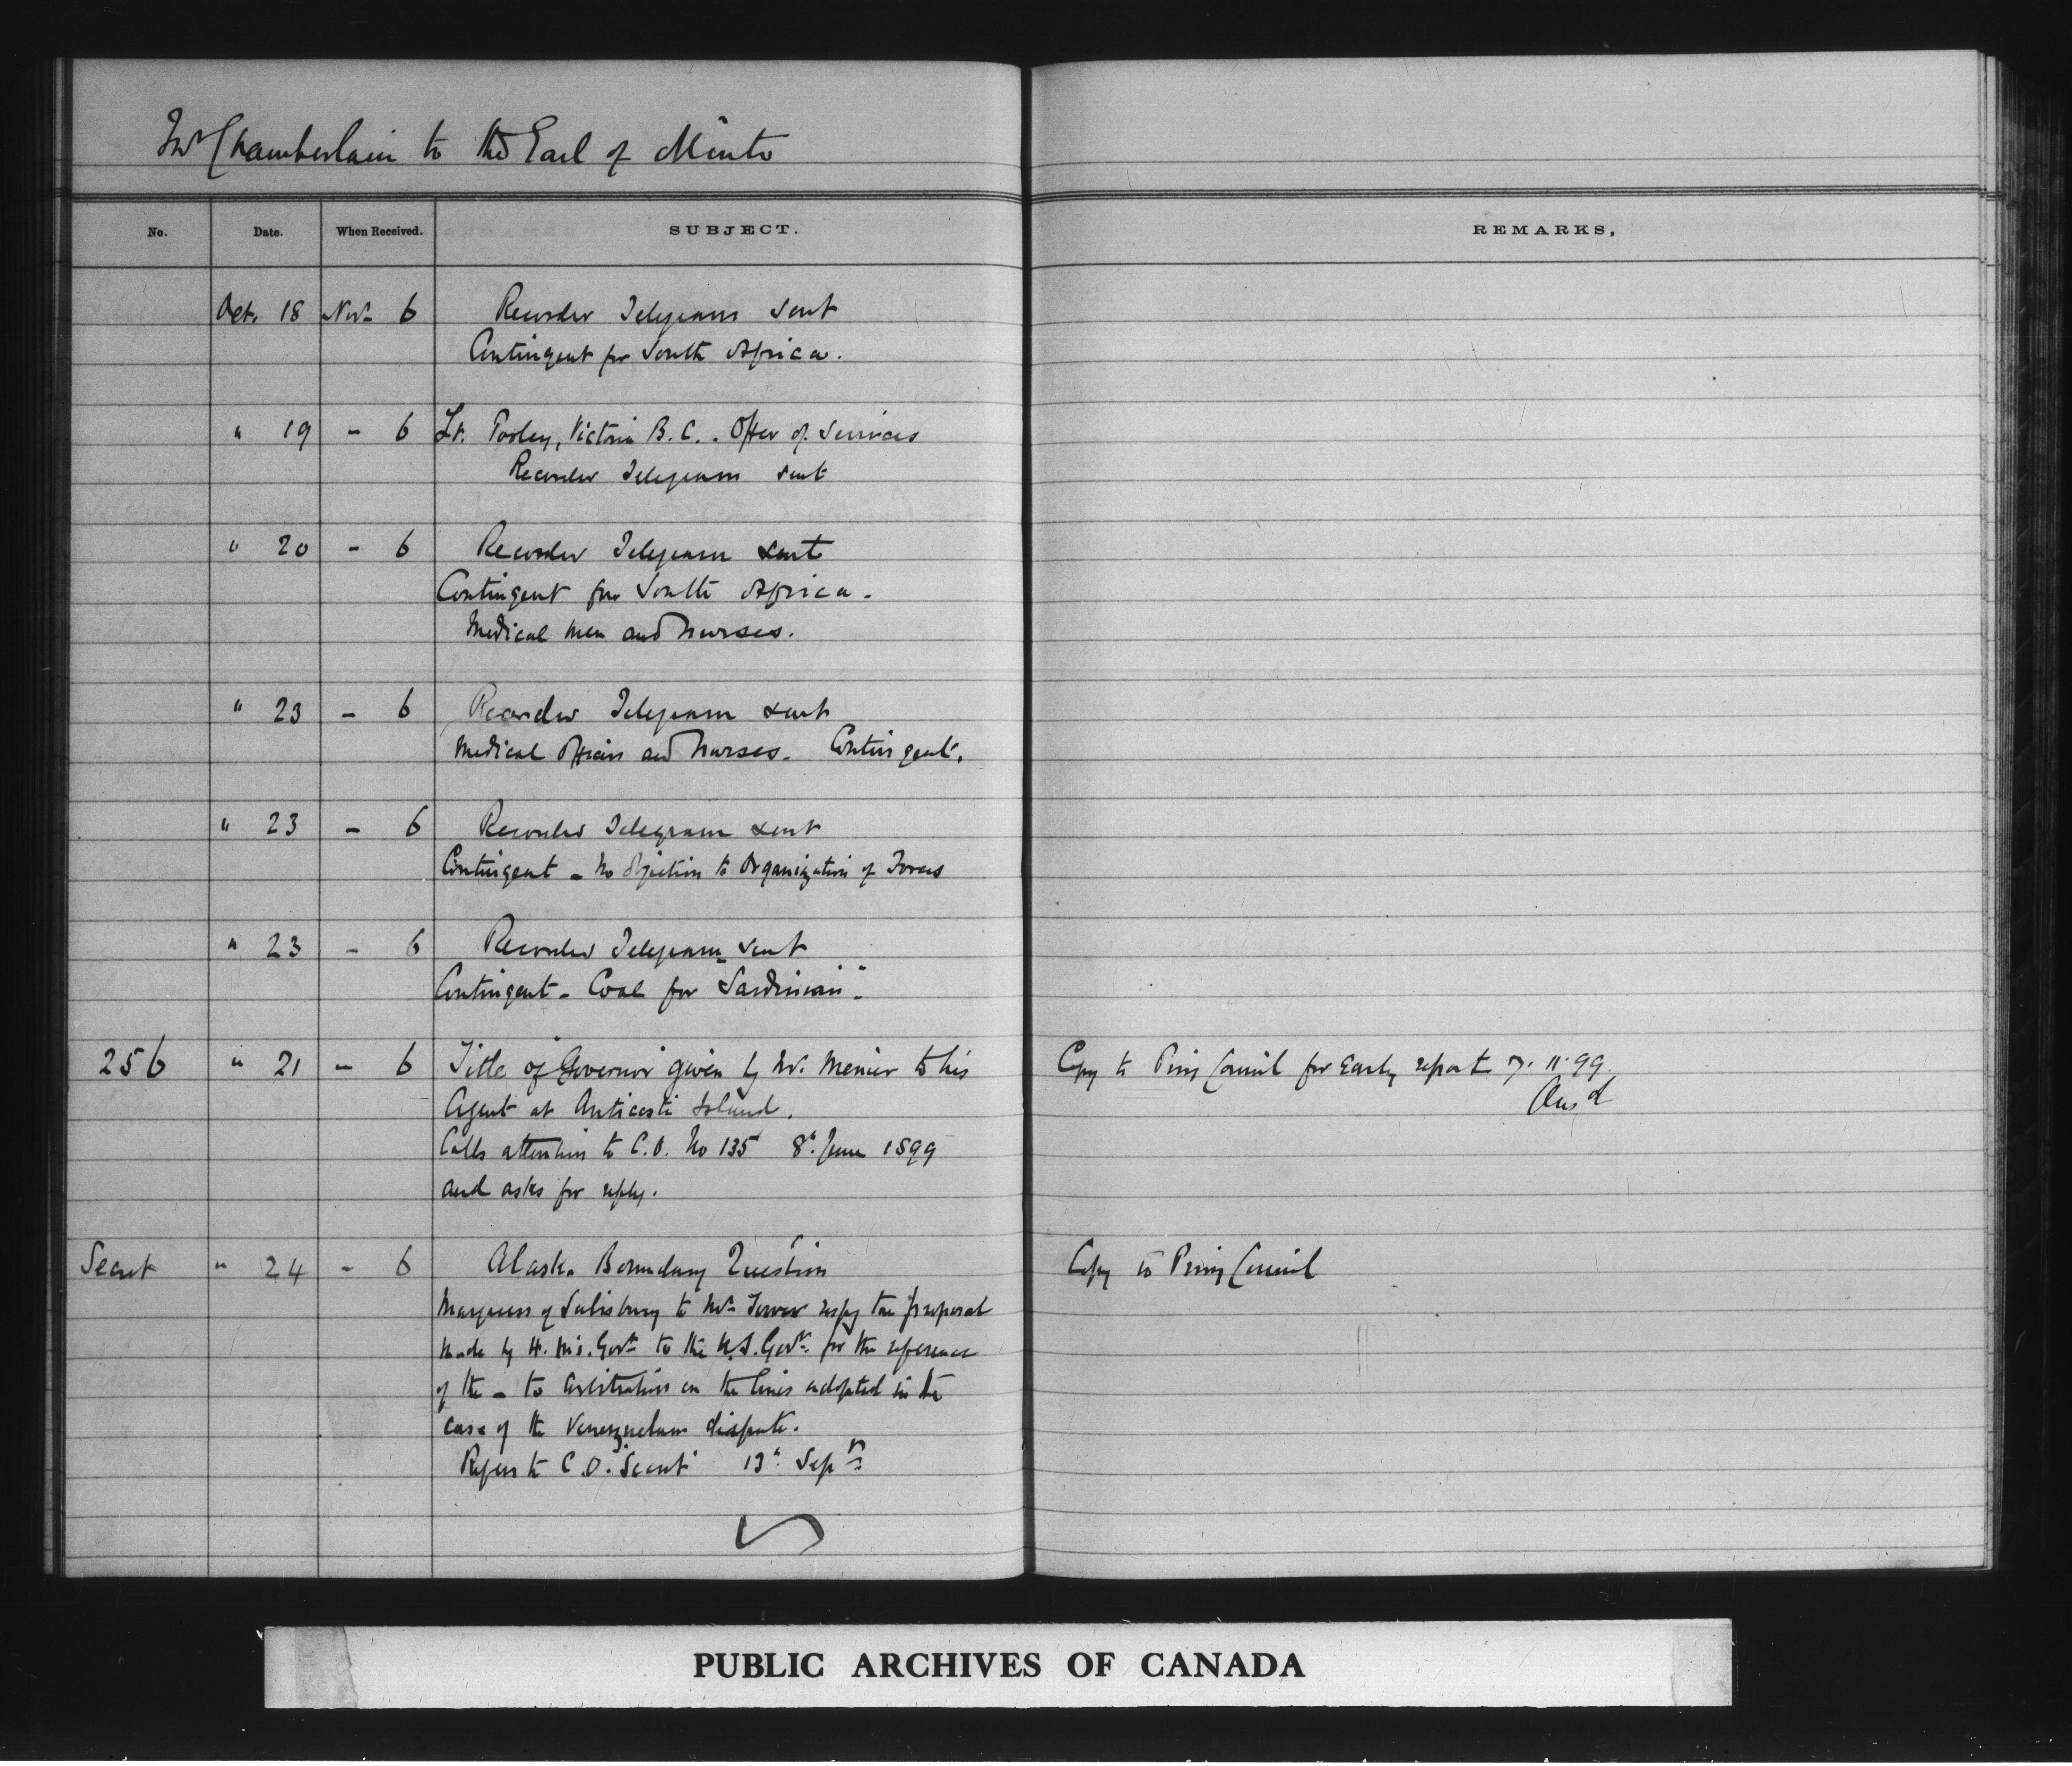 Mr Chamberlain to the Earl of Minto
No. Date. When Received. SUBJECT. REMARKS,
Oct. 18 Novr 6 Recorder Telegram sent
Contingent for South Africa.
" 19 - 6 Lt. Pooley, Victoria B.C.. Offer of Services
Recorder Telegram sent
" 20 - 6 Recorder Telegram sent
Contingent for South Africa.
Medical men and nurses.
" 23 - 6 Recorder Telegram sent
Medical Officers and Nurses. Contingent.
" 23 - 6 Recorder Telegram sent
Contingent - No objection to Organization of Forces
" 23 - 6 Recorder Telegram sent
Contingent - Coal for "Sardinian".
256 " 21 - 6 Title of Governor given by Mr. Menier to his Copy to Privy Council for Early report 7. 11. 99.
Agent at Anticosti Island. Ansd
Calls attention to C.O. No 135 8th June 1899
and asks for reply.
Secret " 24 - 6 Alaska Boundary Question Copy to Privy Council
Marquess of Salisbury to Mr Tower respg the proposal
made by H. M's. Govt to the U.S. Govt. for the reference
of the - to arbitration on the lines adopted in the
case of the Venezuelan dispute.
Refers to C.O. Secret 13th Sepr
PUBLIC ARCHIVES OF CANADA